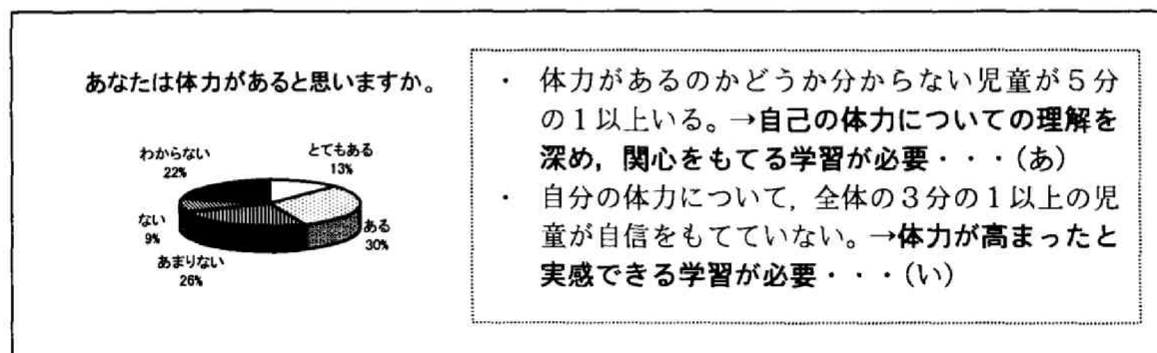 あなたは体力があると思いますか。
わからない
22%
とてもある
13%
ない
9%
ある
30%
あまりない
26%
・ 体力があるのかどうか分からない児童が５分
の１以上いる。→自己の体力についての理解を
深め，関心をもてる学習が必要・・・(あ)
・ 自分の体力について，全体の３分の１以上の児
童が自信をもてていない。→体力が高まったと
実感できる学習が必要・・・(い)